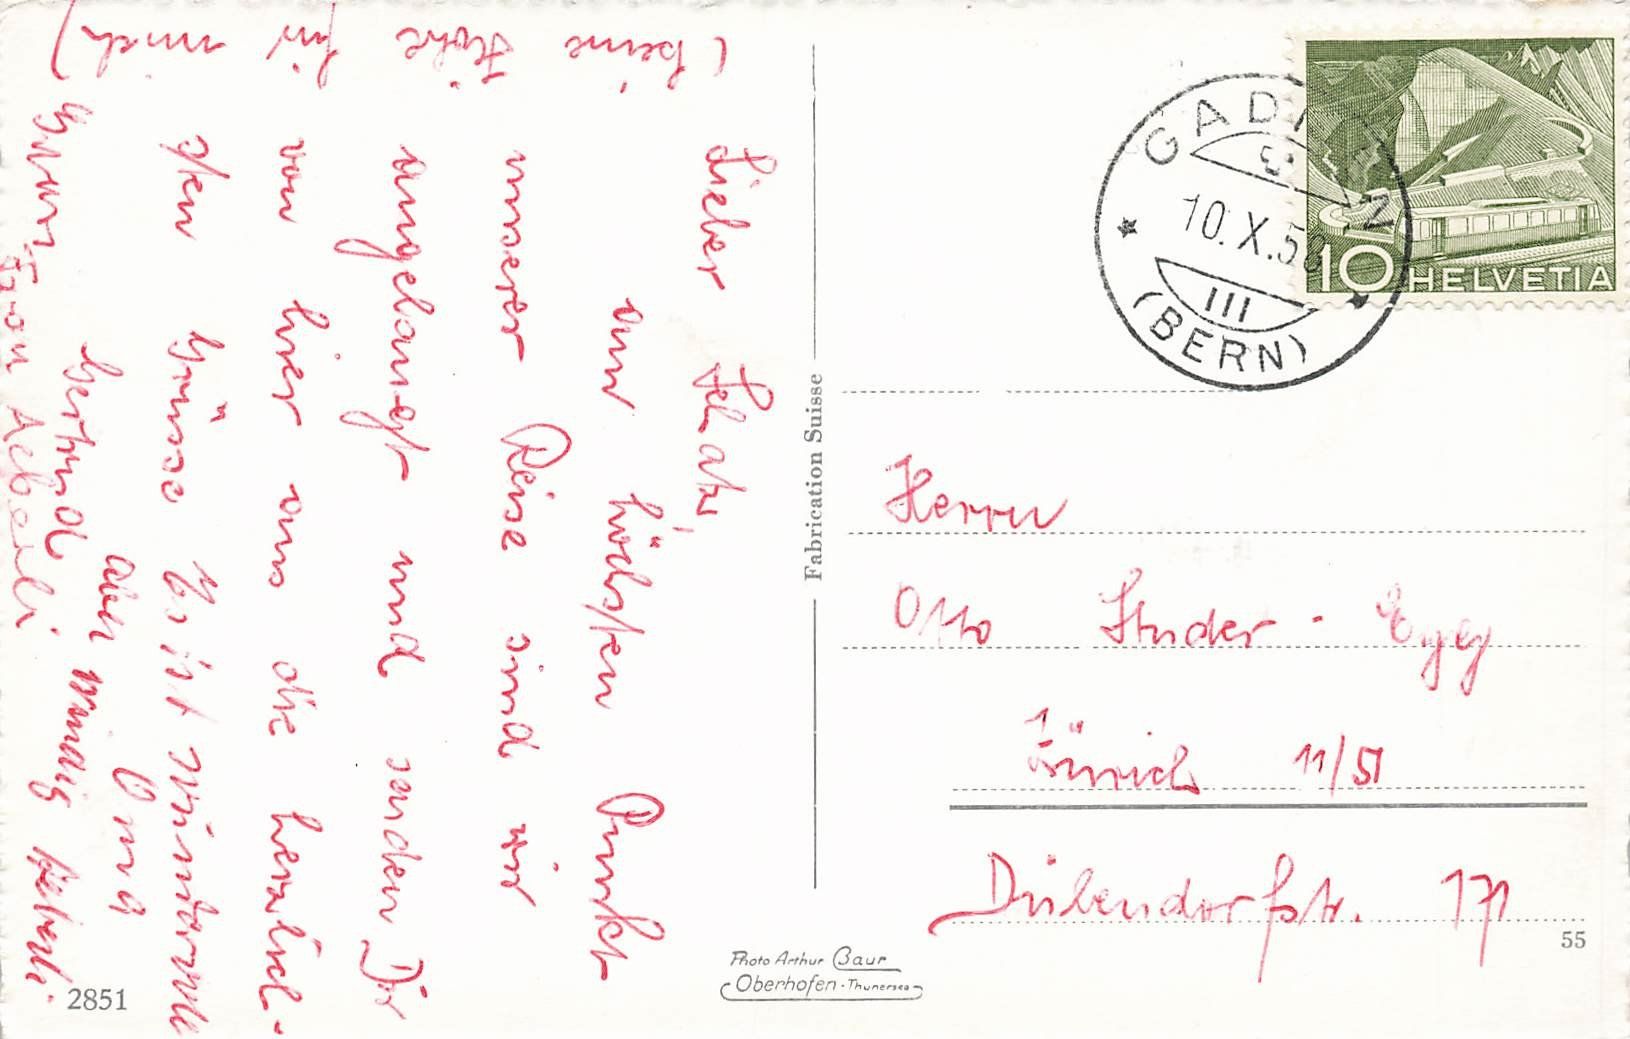 (keine Höhe für mich)
Lieber Schatz,
am höchsten Punkt
unserer Reise sind wir
angelangt und senden Dir
von hier aus die herzlich-
sten Grüsse Es ist wundervoll
aber windig
Oma
Gertrud
Gruss von
GADMEN
10.X.50
III
(BERN)
10 HELVETIA
Fabrication Suisse
Herrn
Otto Studer - Egg
Zürich 11/51
Dübendorfstr. 171
55
Photo Arthur Baur
Oberhofen - Thunersee
2851